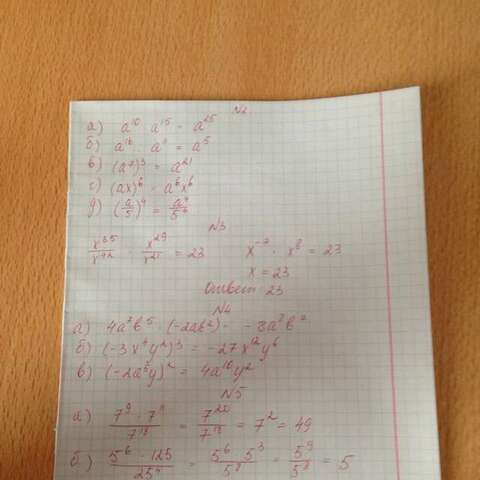 N2
а) a¹⁰ a¹⁵ = a²⁵
б) a¹⁶ : a¹¹ = a⁵
в) (a⁷)³ = a²¹
с) (ax)⁶ = a⁶x⁶
д) (a/5)⁴ = a⁴/5⁴
N3
x³⁵/x⁴² · x²⁹/x²¹ = 23 x⁻⁷ · x⁸ = 23
x = 23
Ответ 23
N4
а) 4a⁷b⁵ · (-2ab²) = -8a⁸b⁷
б) (-3x⁴y²)³ = -27x¹²y⁶
в) (-2a⁵y)² = 4a¹⁰y²
N5
а) 7⁹ · 7¹¹/7¹⁸ = 7²⁰/7¹⁸ = 7² = 49
б) 5⁶ · 125/25⁴ = 5⁶ 5³/5⁸ = 5⁹/5⁸ = 5